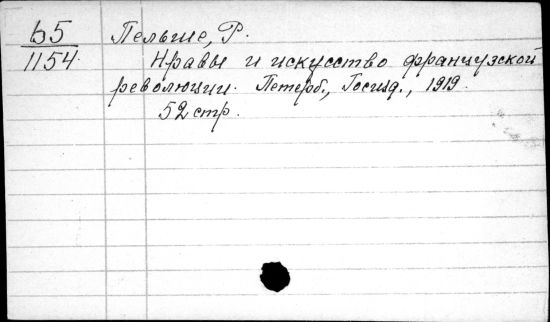 Б5
1154.
Пельше, Р.
Нравы и искусство французской
революции. Петерб., Госизд., 1919.
52 стр.